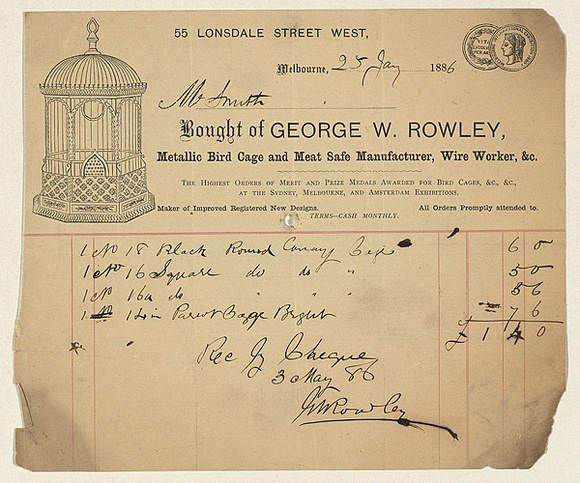 55 LONSDALE STREET WEST,
Melbourne, 25 Jany 1886
Mr Smith
Bought of GEORGE W. ROWLEY,
Metallic Bird Cage and Meat Safe Manufacturer, Wire Worker, &c.
The Highest Orders of Merit and Prize Medals Awarded for Bird Cages, &c., &c.,
at the Sydney, Melbourne, and Amsterdam Exhibitions.
Maker of Improved Registered New Designs. All Orders Promptly attended to.
TERMS–CASH MONTHLY.
1 No 18 Black Round Canary Cage 6 0
1 No 16 Square do do " 5 0
1 No 16a do " " 5 6
1 14 in Parrot Cage Bright 7 6
£ 1 4 0
Rec by Cheque
3 May 86
GW Rowley